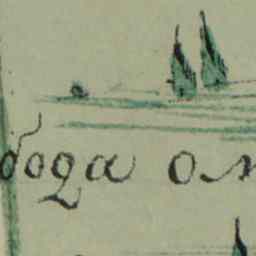 бода от